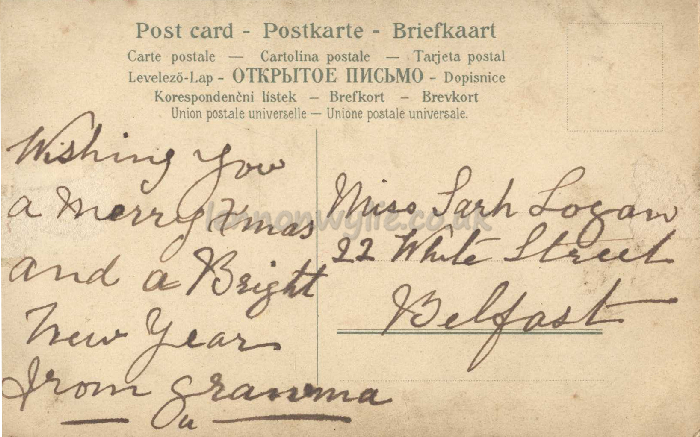 Post card - Postkarte - Briefkaart
Carte postale — Cartolina postale — Tarjeta postal
Levelező-Lap - ОТКРЫТОЕ ПИСЬМО - Dopisnice
Korespondenční listek — Brefkort — Brevkort
Union postale universelle — Unione postale universale.
Wishing you
a merry Xmas
and a Bright
New Year
from granma
Miss Sarh Logan
22 White Street
Belfast